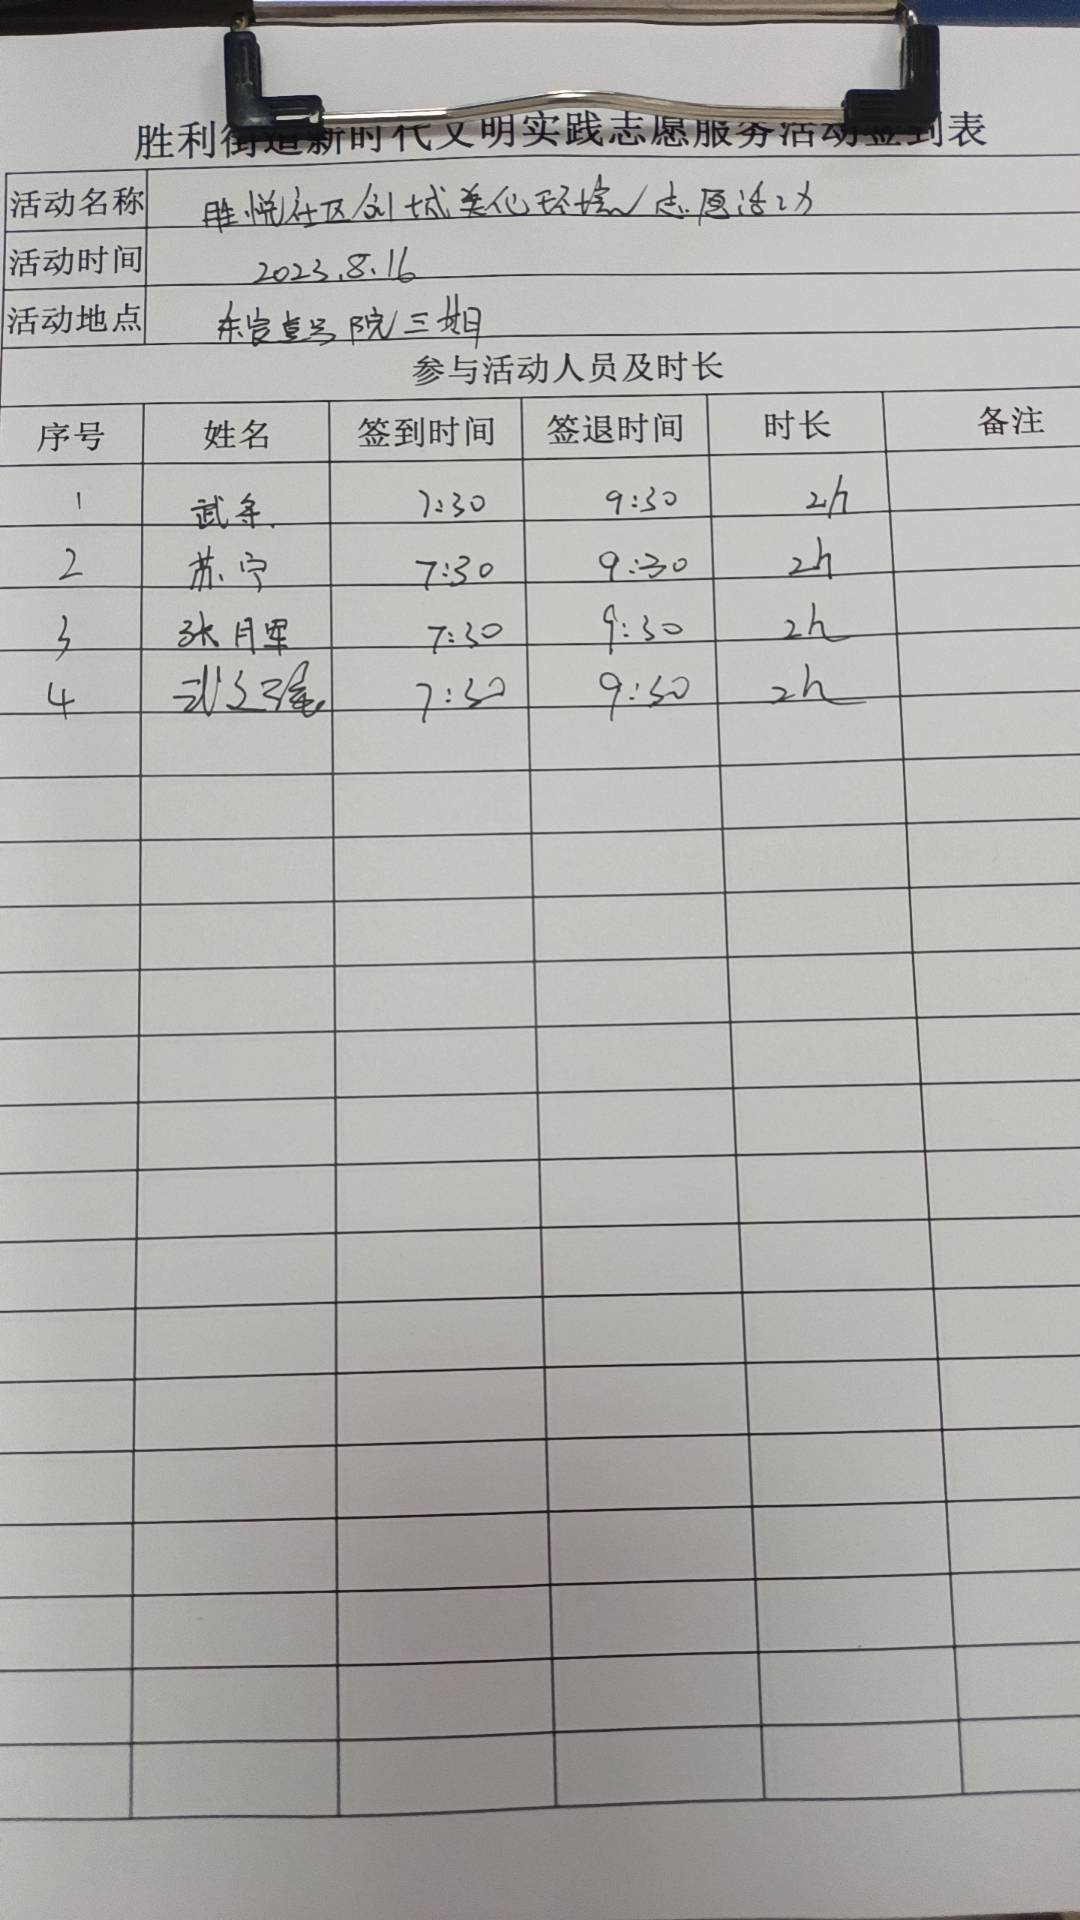 胜利街道新时代文明实践志愿服务活动签到表
活动名称 胜悦社区创城美化环境志愿活动
活动时间 2023.8.16
活动地点 东官壹号院三期
参与活动人员及时长
序号 姓名 签到时间 签退时间 时长 备注
1 武 7:30 9:30 2h
2 苏宁 7:30 9:30 2h
3 张月军 7:30 9:30 2h
4 武文 7:30 9:30 2h